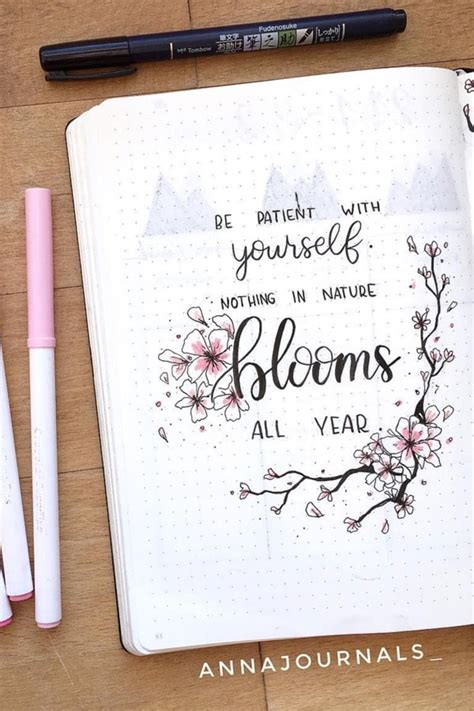 Fudenosuke
Tombow
BE PATIENT WITH
yourself.
NOTHING IN NATURE
blooms
ALL YEAR.
93
ANNAJOURNALS_